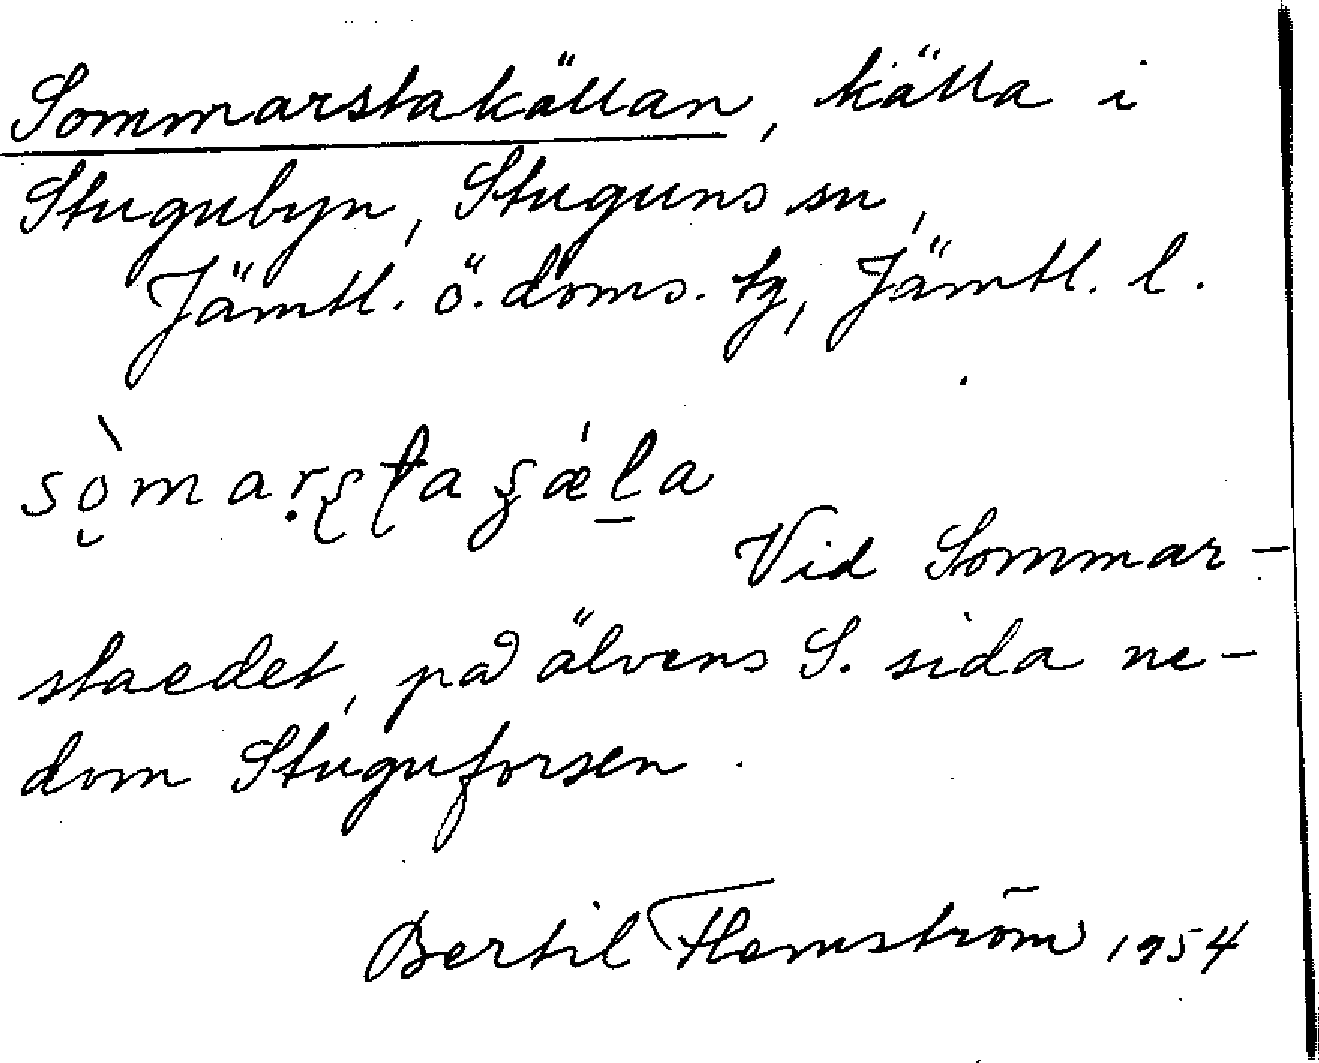 Sommarstakällan, källa i
Stugubyn, Stuguns sn,
Jämtl. ö. doms. tg, Jämtl. l.
sò̯marʂʈaʂǽl̲a
Vid Sommar-
staedet, på älvens S. sida ne-
dom Stuguforsen.
Bertil Flemström 1954